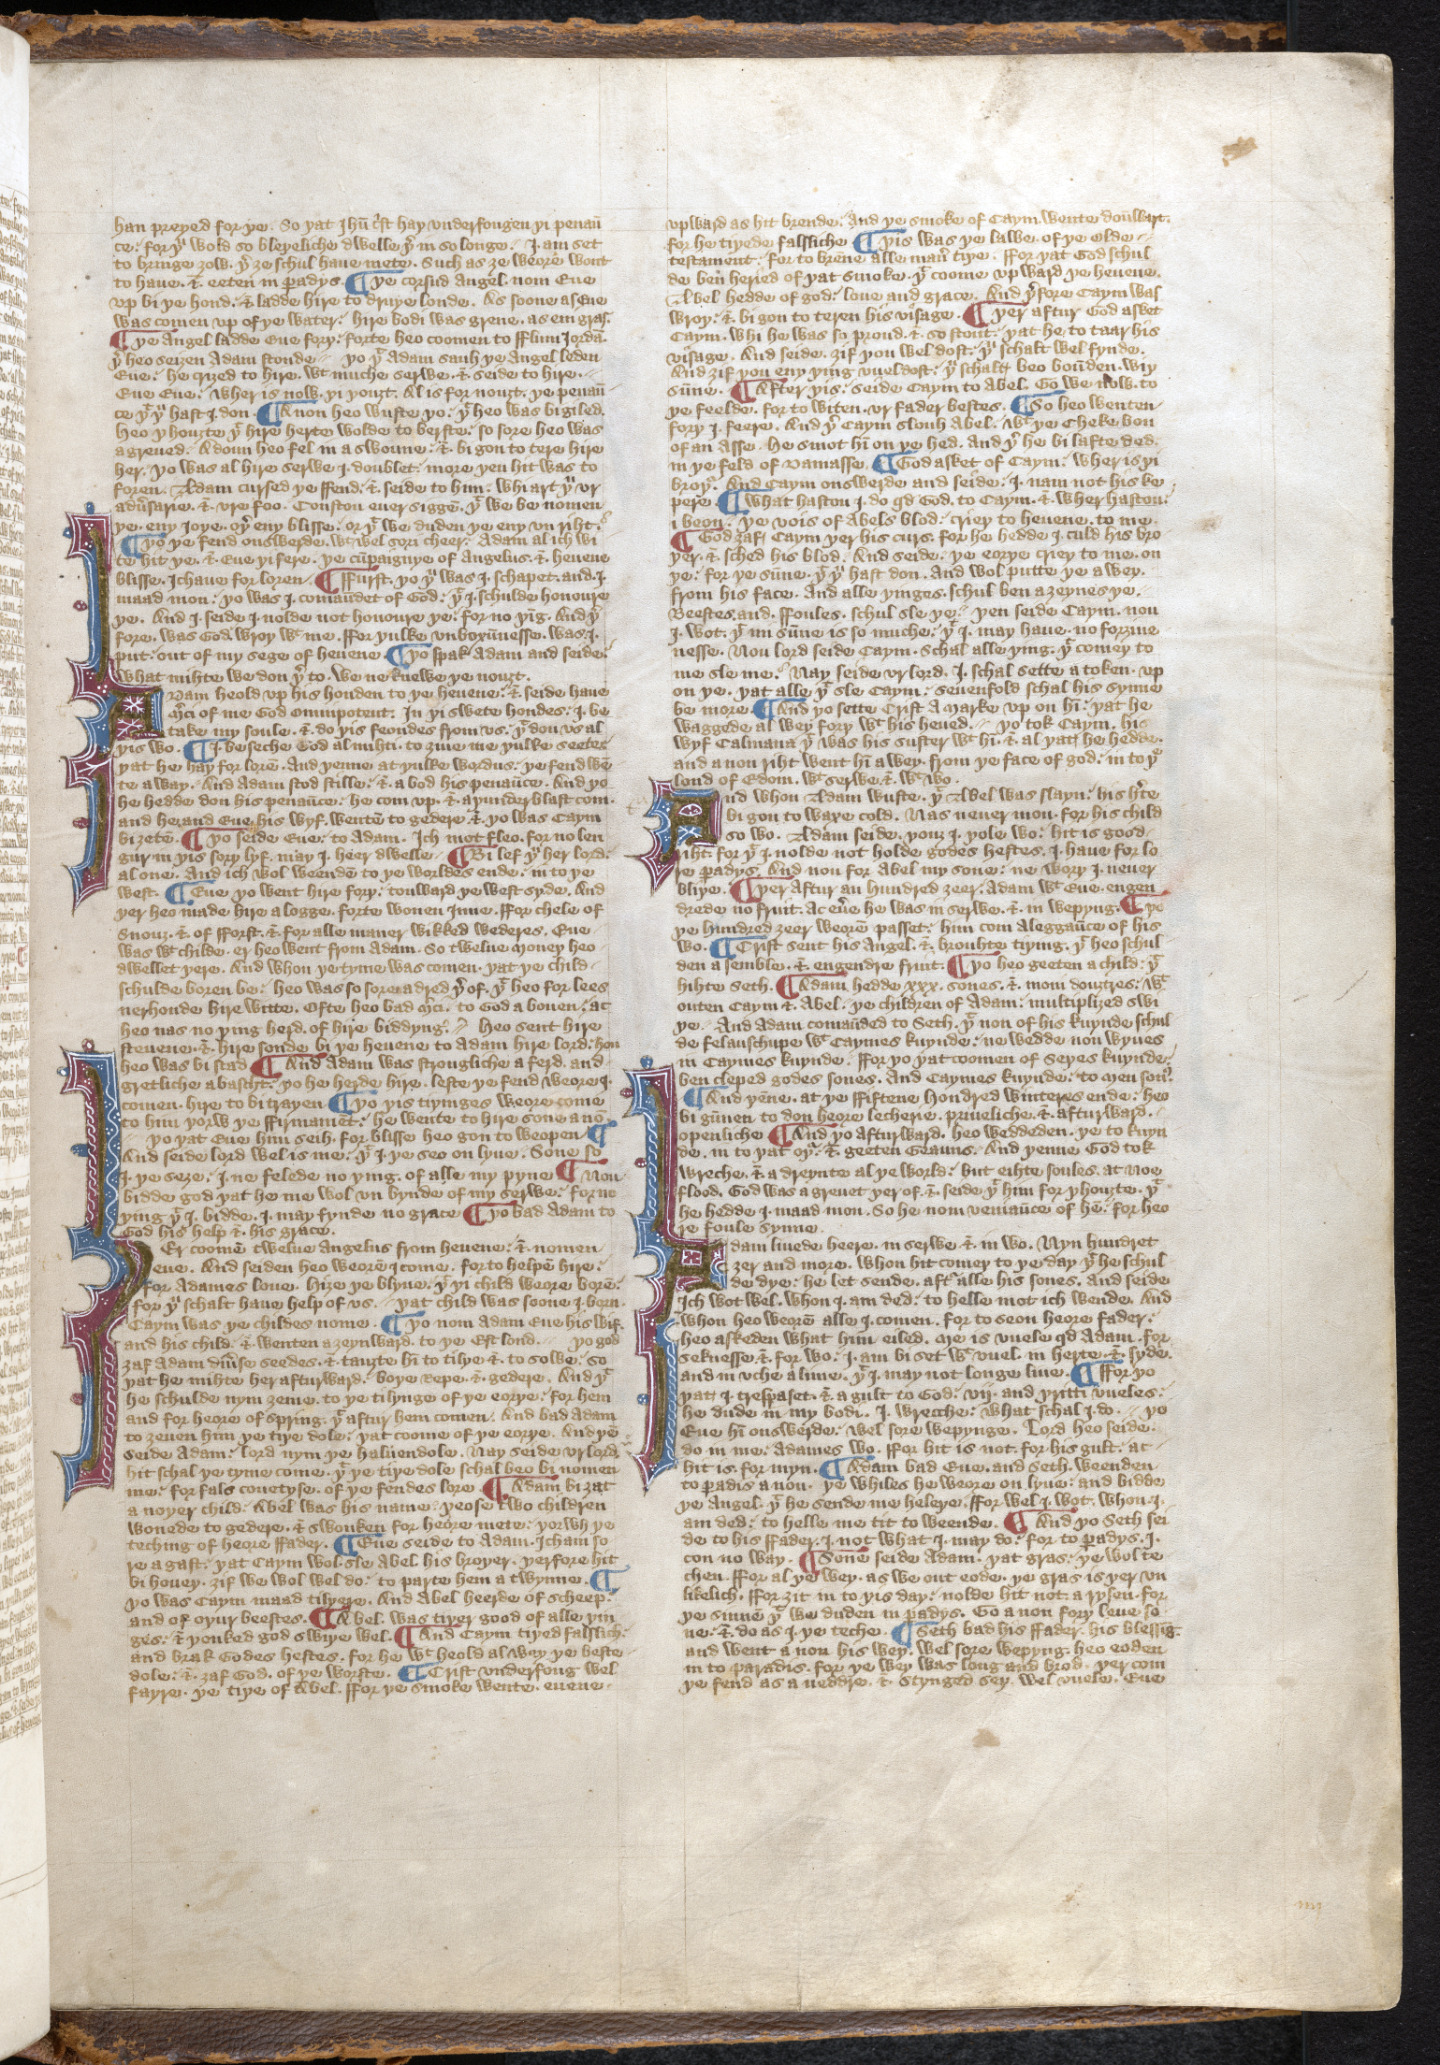 han preyed for þe. So þat Ihū c̓st haþ vnderfongen þi penaū
ce: for þͧ wold so bleþeliche dwelle þ̓ in so longe. I. am set
to bringe ȝow. þ̓ ȝe schul haue mete. Such as ȝe weore wont
to haue. & eeten in ꝑadys. ¶ Þe corsud angel. nom Eue
vp bi þe hond: & ladde hire to druye londe. As soone as Eue
was comen vp of þe water: hire bodi was grene. as em gras.
¶ Þe Angel ladde Eue forþ: forte heo coomen to fflum Iordā.
þ̓ heo seiȝen Adam stonde. Þo þͭ Adam sauh þe Angel leden
Eue: he criȝed to hire. wͭ muche serwe. & seide to hire.
Eue Eue: wher is now. þi þouȝt. Al is for nouȝt. þe penaū
ce þͭ þͧ hast I. don. ¶ Anon heo wuste þo: þͭ heo was bigiled.
Heo þhouȝte þͭ hire herte wolde to berste: so sore heo was
agreued. Adoun heo fel in a swoune: & bigon to tere hire
her. Þo was al hire serwe I. doublet: more þen hit was to
foren. Adam cursed þe ffend: & seide to him: whi art þͧ vr
adūsarie. & vre foo. Constou euer sigge. þͭ we be nomen
þe. eny Ioye. oþ̓ eny blisse: or þͭ we duden þe eny vn riht.
¶ Þo þe fend onswerde. wͭ wel sori cheer: Adam al ich wi
te hit þe. & Eue þi fere. þe cūpaignye of Angelus. & heuene
blisse. Ichaue for loren. ¶ Ffurst. þo þͧ was I. schapet. and. I.
maad mon: þo was I. comaūdet of God: þͭ I. schulde honoure
þe. And I. seide I. nolde not honoure þe: for no þīg. And þ̓
fore. was God wroþ wͭ me. Ffor þulke vnboxūnesse. was. I.
put: out of my sege of heuene. ¶ Þo spak Adam and seide:
what mihte we don þ̓ to. we ne knewe þe nouȝt.
Adam heold vp his honden to þe heuene: & seide haue
m̓ci of me God omnipotent. In þi swete hondes: I. be
take my soule. & do þis feondes from vs: þͭ don vs al
þis wo. ¶ I. beseche God almihti. to ȝiue me þulke seetes
þat he haþ for lorē. And þenne at þulke wordus: þe fend wē
te a way. And Adam stod stille: & a bod his penaūce. And þo
he hedde don his penaūce: he com vp. & a þunderblast com.
and heȝand Eue his wyf. wente to gedere: & þo was Caym
biȝetē. ¶ Þo seide Eue: to Adam. Ich mot fleo. for no len
gur in þis sory lyf. may I. heer dwelle. ¶ Bi lef þͧ her lord:
al one. And ich wol weende to þe worldes ende: in to þe
west. ¶ Eue þo went hire forþ: touward þe west syde. And
þer heo made hire a logge. forte wonen Inne. Ffor chele of
Snouȝ: & of Fforst. & for alle maner wikked wederes. Eue
was wͭ childe. er heo went from Adam. So twelue moneþ heo
dwellet þere. And whon þe tyme was comen. þat þe child
schulde boren be: heo was so sore adred þ̓ of. þͭ heo for lees
nerhonde hire witte. Ofte heo bad m̓ci. to God a bouen: ac
heo nas no þing herd. of hire biddyng. Heo sent hire
steuene. & hire sonde bi þe heuene to Adam hire lord: hou
heo was bi stad. ¶ And Adam was strongliche a ferd. and
gretliche abascht: þo he herde hire. leste þe fend weore I.
comen. hire to bitrayen. ¶ Þo þis tiþinges weore come
to him þorw þe ffirmamēt: he wente to hire sone anō.
Þo þat Eue him seih. for blisse heo gon to weopen ¶
And seide lord wel is me: þͭ I. þe seo on lyue. Sone so
I. þe seȝe: I. ne felede no þing. of alle my pyne ¶ Nou
bidde god þat he me wol vn bynde of my serwe: for no
þing þͭ I. bidde. I. may fynde no grace ¶ Þo bad Adam to
God his help & his grace.
Þer coomē twelue angelus from heuene: & nomen
eue. And seiden heo weore I come. forto helpē hire:
for Adames loue. Hiȝe þe blyue. þͭ þi child weore borē:
for þͧ schalt haue help of vs. Þat child was soone I. born.
Caym was þe childes nome. ¶ Þo nom Adam Eue his wif.
and his child: & wenten aȝeynward. to þe Est lond. Þo god
ȝaf Adam diūse seedes. & tauȝte hī to tilþe & to sowe: so
þat he mihte her afturward: boþe Repe. & gedere. And þͭ
he schulde nym ȝeme. to þe tilyinge of þe eorþe: for hem
and for heore of spring. þͭ aftur hem comen. And bad Adam
to ȝeuen him þe tiþe dole: þat coome of þe eorþe. And þē
seide Adam: lord nym þe haluendole. Nay seide vr lord.
hit schal þe tyme come. þͭ þe tiþe dole schal beo bi nomen
me: for fals couetyse. of þe fendes lore. ¶ Adam biȝat
a noþer child: Abel was his name: þeose two children
wonede to gedere. & swonken for heore mete: þorwh þe
teching of heore ffader. ¶ Eue seide to Adam. Icham so
re agast: þat Caym wol sle Abel his broþer. þerfore hit
bi houeþ. ȝif we wol wel do: to parte hem a twynne. ¶
Þo was Caym maad tilyere. And Abel heerde of scheep:
and of oþur beestes. ¶ Abel. was tiþer good of alle þin
ges: & þonked god swiþe wel. ¶ And Caym tiþed falslich:
and brak Godes hestes. for he wͭ heold alway þe beste
dole: & ȝaf God. of þe worste. ¶ Crist vnderfong wel
fayre. þe tiþe of Abel. Ffor þe smoke wente. euene
vpward as hit brende: And þe smoke of Caym. wente dounwart.
for he tiþede falsliche ¶ Þis was þe lawe. of þe olde
testament: for to brēne alle manͬ tiþe. Ffor þat God schul
de ben heried of þat smoke. þͭ coome vpward þe heuene.
Abel hedde of god: loue and grace. And þ̓fore Caym was
wroþ: & bi gon to teren his visage. ¶ Þer aftur God asket
Caym. whi he was so proud. & so stout: þat he to taar his
visage. And seide. ȝif þou wel dost: þͧ schalt wel fynde.
And ȝif þou eny þing vueldost: þͧ schalt beo boūden. wiþ
sūne. ¶ After þis: seide Caym to Abel. Go we now. to
þe feelde. for to witen. vr fader bestes. ¶ So heo wenten
forþ I. feere. And þ̓ Caym slouh Abel. wͭ þe Cheke bon
of an Asse. He smot hī on þe hed. And þ̓ he bi lafte ded.
in þe feld of Damasse. ¶ God asket of Caym: wher is þi
broþ̓. And Caym onswerde and seide: I. nam not his ke
pere. ¶ What hastou I. do qd God. to Caym. & wher hastou:
I beon. Þe vois of Abels blod: crieþ to heuene. to me.
¶ God ȝaf. Caym þer his curs. for he hedde I. culd his bro
þer. & sched his blod. And seide: þe eorþe crieþ to me. on
þe: for þe sūne. þͭ þͧ hast don. And wol putte þe awey.
from his face. And alle þinges. schul ben aȝeynes þe.
Beestes. and. ffoules. schul sle þe: Þen seide Caym. nou
I. wot. þͭ mi sūne is so muche: þͭ I. may haue. no forȝiue
nesse. Nou lord seide Caym. Schal alle þing. þͭ comeþ to
me sle me: Nay seide vr lord. I. schal sette a token. vp
on þe. þat alle þͭ sle Caym: seuenfold schal his synne
be more. ¶ And þo sette Crist a Marke vp on hī: þat he
waggede al wey forþ wͭ his heued. Þo tok Caym. his
wyf Calmana þͭ was his suster wͭ hī. & al þat he hedde.
and anon riht went hī awey. from þe face of god: in to þͤ
lond of Edom. wͭ serwe. & wͭ wo.
And whon Adam wuste. þͭ Abel was slayn: his h̓te
bi gon to waxe cold. Nas neuer mon. for his child
so wo. Adam seide. þouȝ I. þole wo: hit is good
riht. for þͭ I. nolde not holde godes hestes. I. haue for lo
re ꝑadys. And nou for Abel my sone: ne worþ I. neuer
bliþe. ¶ Þer aftur an hundred ȝeer. Adam wͭ Eue. engen
drede no fruit. Ac eūe he was in serwe. & in wepyng. ¶ Þo
þe hundred ȝeer weorē passet: him com aleggaūce of his
wo. ¶ Crist sent his Angel. & brouhte tiþing. þͭ heo schul
den asemble. & engendre fruit. ¶ Þo heo geeten a child: þͭ
hihte Seth. ¶ Adam hedde xxx. sones. & moni douȝtres: wͭ
outen Caym & Abel. Þe children of Adam: multiplied swi
þe. And Adam comaūded to Seth. þͭ non of his kuynde schul
de felauschupe wͭ Caymes kuynde: ne wedde non wyues
in Caymes kuynde. Ffor þo þat coomen of Seþes kuynde:
ben cleped godes sones. And Caymes kuynde: to Men son̓.
¶ And þēne. at þe ffiftene Hondred winteres ende: heo
bi gūnen to don heore lecherie. priueliche. & afturward.
openliche ¶ And þo afturward. heo weddeden. þe to kuyn
de. in to þat oþ̓. & geeten Geauns. And þenne God tok
wreche. & a dreynte al þe world: but eihte soules. at Noe
flood. God was a greuet þer of. & seide þͭ him for þhouȝte. þͭ
he hedde I. maad mon. So he nom veniaūce of he: for heo
re foule synne.
Adam liuede heere. in serwe & in wo. Nyn hundret
ȝer and more. Whon hit comeþ to þe day þͭ he schul
de dye: he let sende. aft̓ alle his sones. and seide
Ich wot wel. whon I. am ded: to helle mot ich wende. And
whon heo weorē alle I. comen. for to seon heore fader:
heo askeden what him eiled. Me is vuele qd Adam. for
seknesse. & for wo: I. am bi set wͭ vuel. in herte. & syde.
and in vche a lime. þͭ I. may not longe liue. ¶ Ffor þo
þat I. trespaset. & a gult to God: vij. and þritti vueles:
he dude in my bodi. I. wrecche: what schal I. do. Þo
Eue hī onswerde: wel sore wepynge. Lord heo seide.
do in me: Adames wo. Ffor hit is not. for his gult: ac
hit is. for myn. ¶ Adam bad Eue. and Seth. weenden
to ꝑadis anon. Þe whiles he weore on lyue: and bidde
þe Angel. þͭ he sende me heleþe. Ffor wel I. wot. whon. I.
am ded: to helle me tit to weende. ¶ And þo Seth sei
de to his ffader. I. not what I. may do: for to ꝑadys. I.
con no way. ¶ Sone seide Adam. þat gras: þe wol te
chen. Ffor al þe wey. as we out eode. þe gras is þer vn
likelich. Ffor ȝit in to þis day: nolde hit not. a rysen. for
þe sinne þͭ we duden in ꝑadys. Go anon forþ leue so
ne: & do as I. þe teche. ¶ Seth bad his ffader. his blessīg.
and went anon his wey. wel sore wepyng: heo eoden.
in to paradis. for þe wey was long and brod. Þer com
þe fend as a neddre. & stynged Seþ. wel vuele. Eue